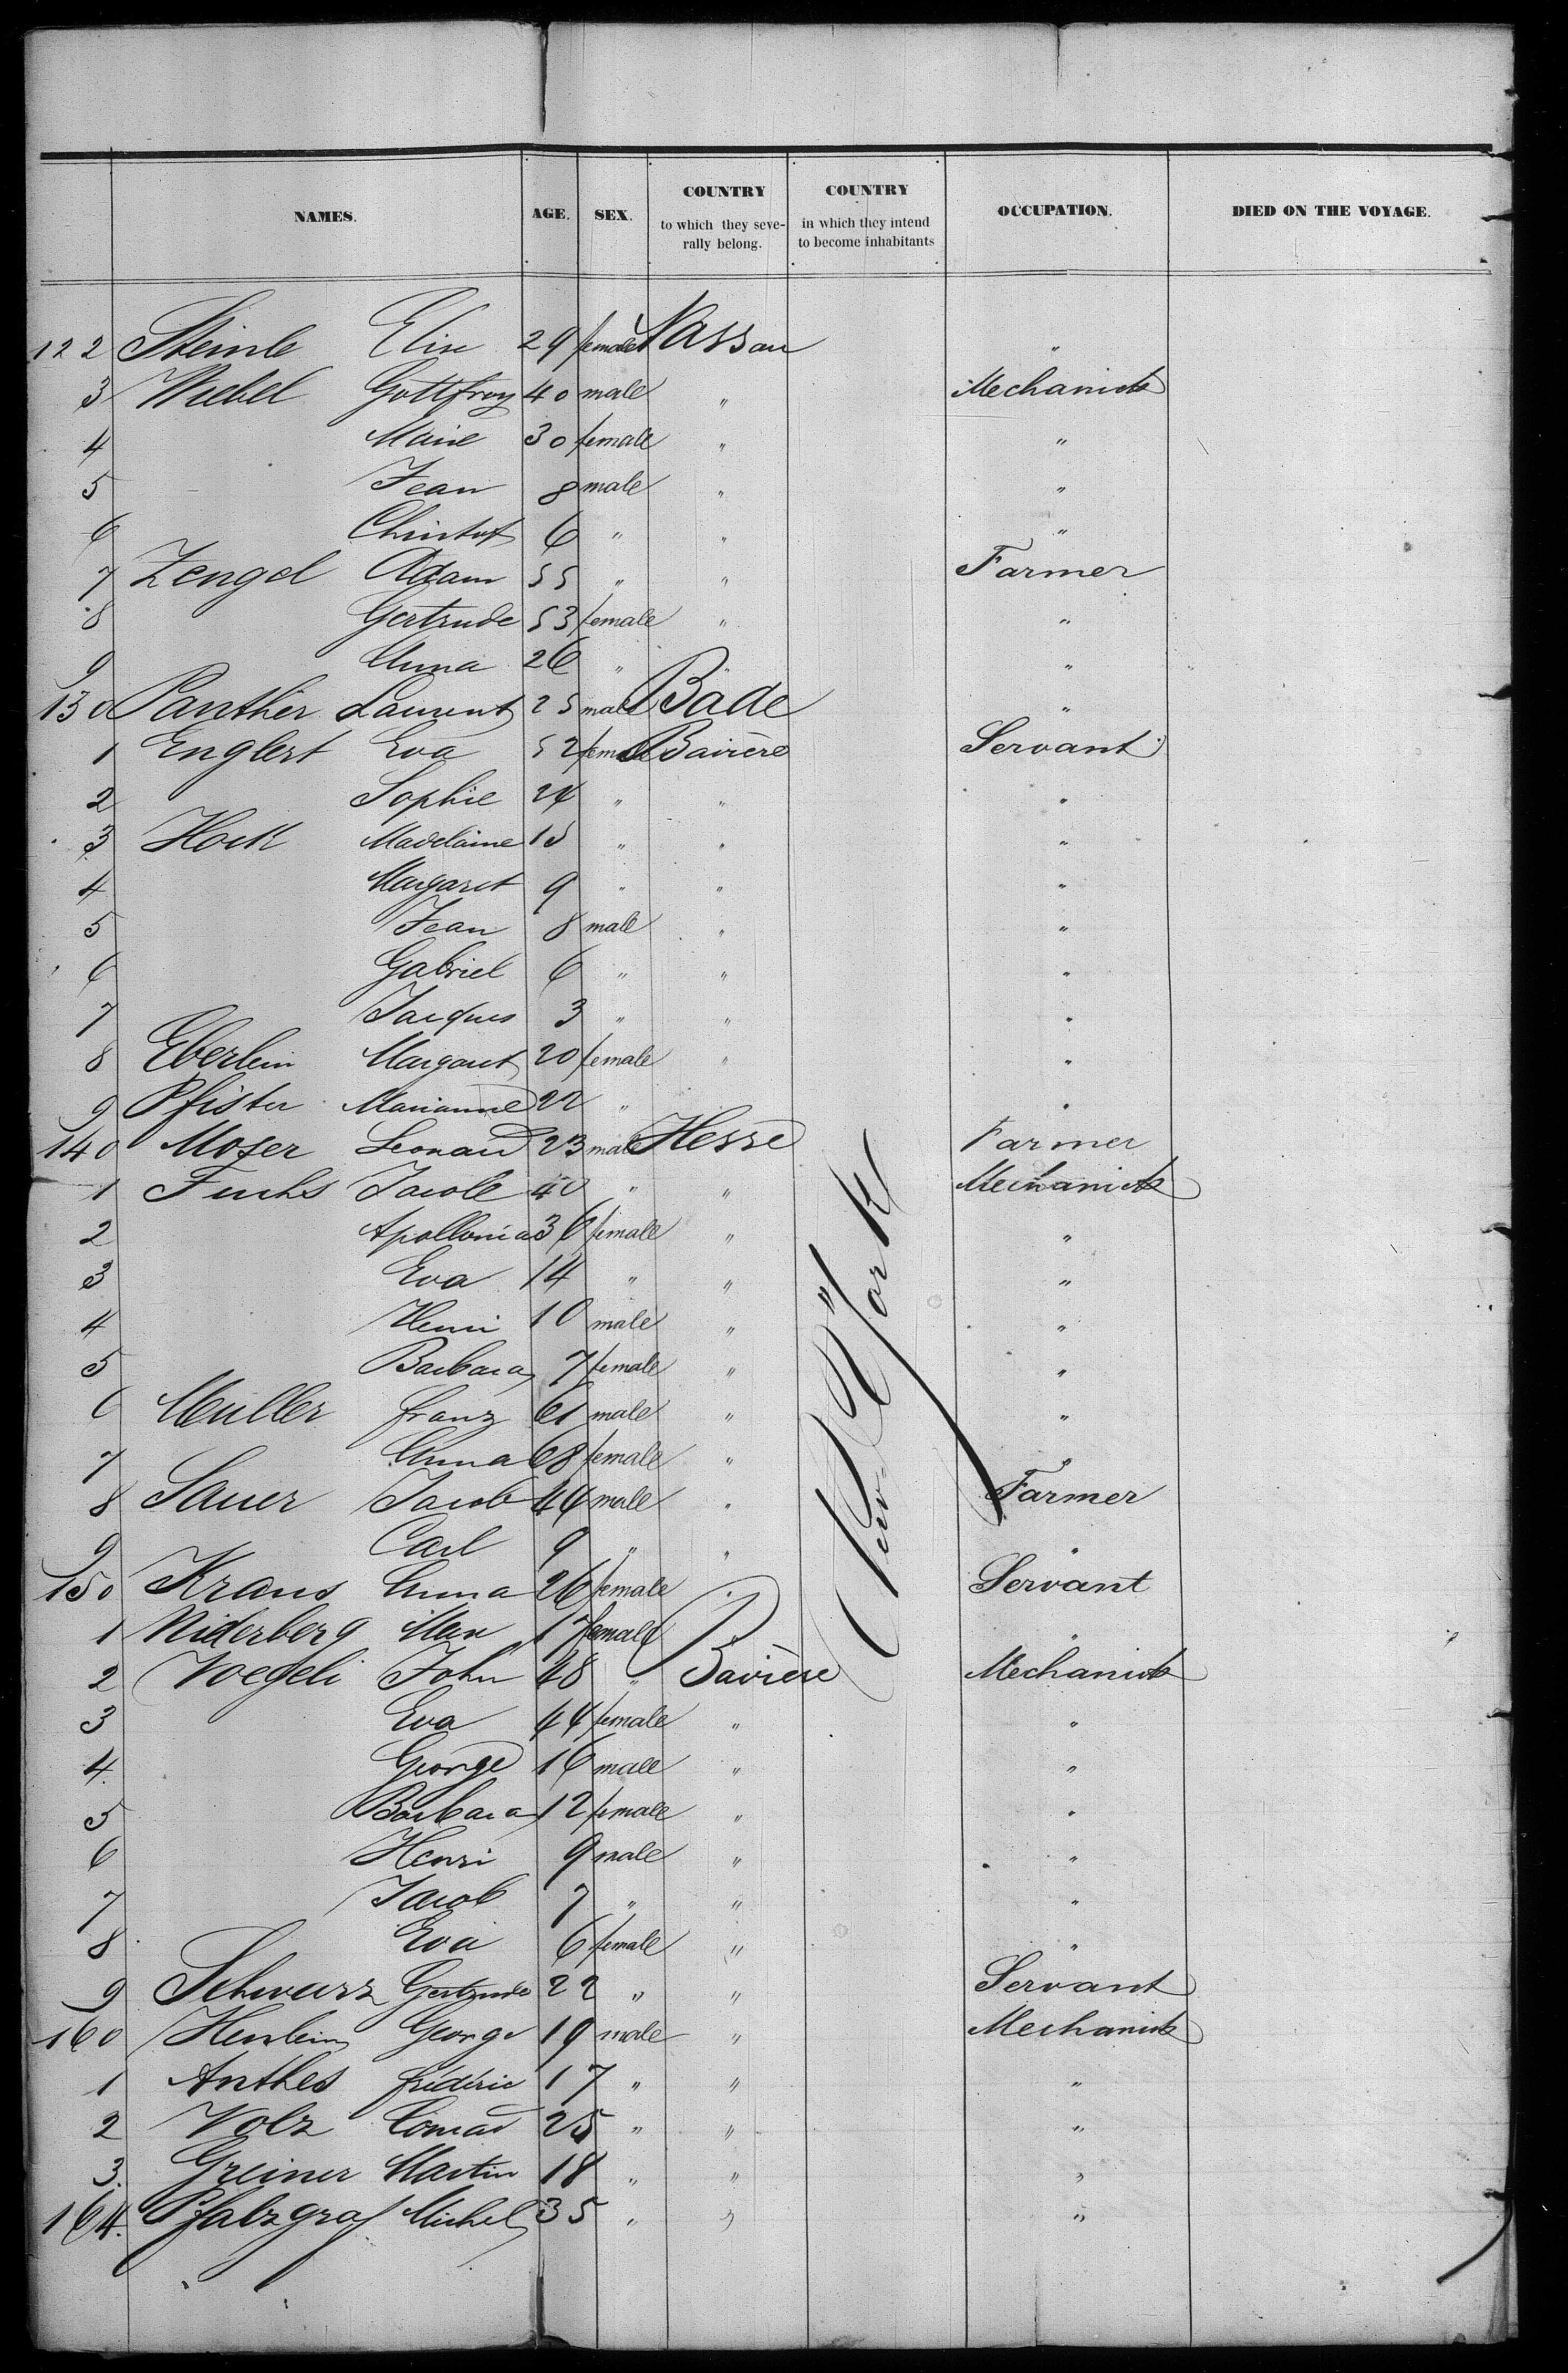 NAMES. AGE. SEX. COUNTRY to which they severally belong. COUNTRY in which they intend to become inhabitants OCCUPATION. DIED ON THE VOYAGE.
122 Steinle Elise 29 female Nassau "
3 Wiebel Gottfroy 40 male " Mechanick
4 Marie 30 female " "
5 Jean 8 male " "
6 Christof 6 " " "
7 Zengel Adam 55 " " Farmer
8 Gertrude 53 female " "
9 Anna 26 " "
130 Panther Laurent 25 male Bade "
1 Englert Eva 52 female Bavière Servant
2 Sophie 24 " " "
3 Hock Madelaine 15 " " "
4 Margaret 9 " " "
5 Jean 8 male " "
6 Gabriel 6 " " "
7 Jacques 3 " " "
8 Eberlein Margaret 20 female " "
9 Pfister Marianne 22 " "
140 Moser Leonard 23 male Hesse Farmer
1 Fuchs Jacob 40 " " Mechanick
2 Apollonia 36 female " "
3 Eva 14 " " "
4 Henri 10 male " "
5 Barbara 7 female " "
6 Muller franz 61 male " "
7 Anna 68 female " "
8 Sauer Jacob 44 male " Farmer
9 Carl 9 " " "
150 Kraus Anna 26 female " Servant
1 Niderberg 17 female "
2 Voegeli John 48 " Bavière Mechanick
3 Eva 44 female " "
4 George 16 male " "
5 Barbara 12 female " "
6 Henri 9 male " "
7 Jacob 7 " " "
8 Eva 6 female " "
9 Schwarz Gertrude 22 " " Servant
160 Henlein George 19 male " Mechanick
1 Anthes frédéric 17 " " "
2 Volz Conrad 25 " " "
3. Greiner Martin 18 " " "
164. Pfalzgraf Michel 35 " " "
New-York